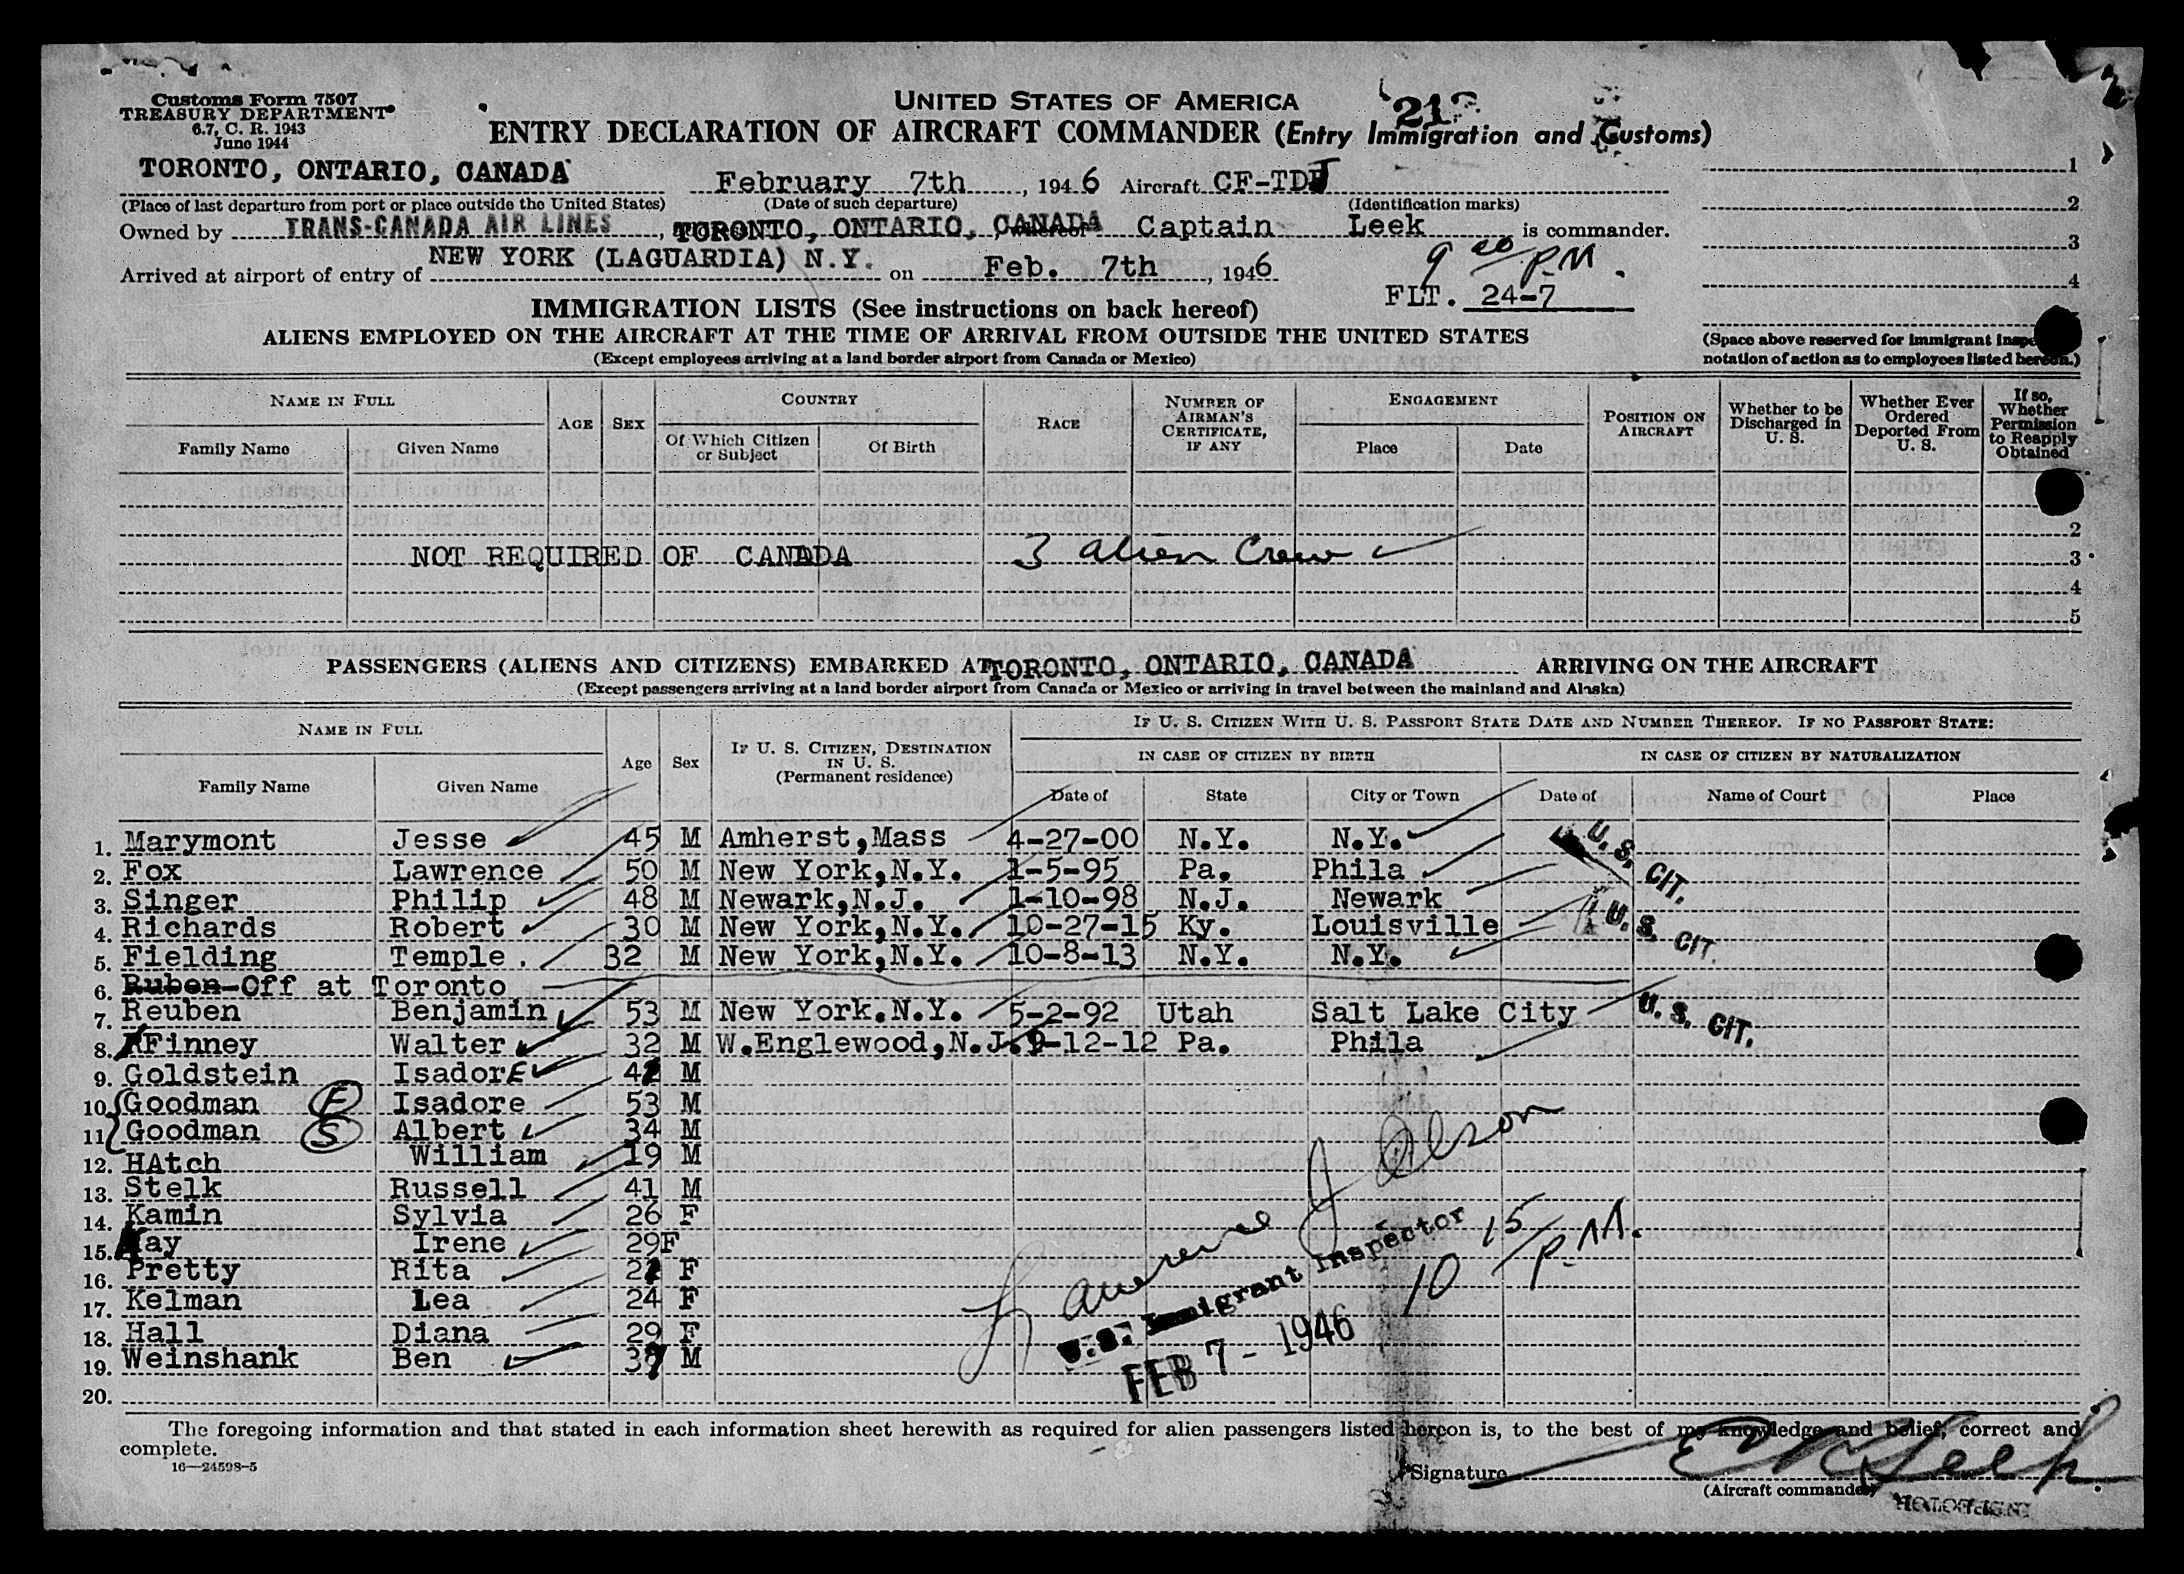 Customs Form 7507
TREASURY DEPARTMENT
6.7, C. R. 1943
June 1944
UNITED STATES OF AMERICA
ENTRY DECLARATION OF AIRCRAFT COMMANDER (Entry Immigration and Customs)
TORONTO, ONTARIO, CANADA February 7th, 1946 Aircraft CF-TDJ 1
(Place of last departure from port or place outside the United States) (Date of such departure) (Identification marks)
2
Owned by TRANS-CANADA AIR LINES, TORONTO, ONTARIO, CANADA Captain Leek is commander.
3
9 00 P.M.
Arrived at airport of entry of NEW YORK (LAGUARDIA) N.Y. on Feb. 7th, 1946
4
FLT. 24-7
IMMIGRATION LISTS (See instructions on back hereof)
ALIENS EMPLOYED ON THE AIRCRAFT AT THE TIME OF ARRIVAL FROM OUTSIDE THE UNITED STATES
(Except employees arriving at a land border airport from Canada or Mexico)
(Space above reserved for immigrant
notation of action as to employees listed hereon.)
NAME IN FULL
Family Name
Given Name
AGE
SEX
COUNTRY
Of Which Citizen or Subject
Of Birth
RACE
NUMBER OF AIRMAN'S CERTIFICATE, IF ANY
ENGAGEMENT
Place
Date
POSITION ON AIRCRAFT
Whether to be Discharged in U. S.
Whether Ever Ordered Deported From U. S.
If so, Whether Permission to Reapply Obtained
2
NOT REQUIRED OF CANADA 3 alien Crew 3
4
5
PASSENGERS (ALIENS AND CITIZENS) EMBARKED AT TORONTO, ONTARIO, CANADA ARRIVING ON THE AIRCRAFT
(Except passengers arriving at a land border airport from Canada or Mexico or arriving in travel between the mainland and Alaska)
NAME IN FULL
Family Name
Given Name
Age
Sex
IF U. S. CITIZEN, DESTINATION IN U. S. (Permanent residence)
IF U. S. CITIZEN WITH U. S. PASSPORT STATE DATE AND NUMBER THEREOF. IF NO PASSPORT STATE:
IN CASE OF CITIZEN BY BIRTH
Date of
State
City or Town
IN CASE OF CITIZEN BY NATURALIZATION
Date of
Name of Court
Place
1. Marymont Jesse 45 M Amherst,Mass 4-27-00 N.Y. N.Y.
2. Fox Lawrence 50 M New York,N.Y. 1-5-95 Pa. Phila
U. S. CIT.
3. Singer Philip 48 M Newark,N.J. 1-10-98 N.J. Newark
4. Richards Robert 30 M New York,N.Y. 10-27-15 Ky. Louisville
U. S. CIT.
5. Fielding Temple. 32 M New York,N.Y. 10-8-13 N.Y. N.Y.
6. Ruben-Off at Toronto
7. Reuben Benjamin 53 M New York.N.Y. 5-2-92 Utah Salt Lake City
U. S. CIT.
8. Finney Walter 32 M W.Englewood,N.J. 9-12-12 Pa. Phila
9. Goldstein IsadorE 42 M
10. Goodman F Isadore 53 M
11. Goodman S Albert 34 M
12. HAtch William 19 M
13. Stelk Russell 41 M
14. Kamin Sylvia 26 F
15. Kay Irene 29 F
16. Pretty Rita F
17. Kelman Lea 24 F
18. Hall Diana 29 F
19. Weinshank Ben 37 M
20.
Lawrence J Olson
U.S. Immigrant Inspector
FEB 7 - 1946
10 15 P.M.
The foregoing information and that stated in each information sheet herewith as required for alien passengers listed hereon is, to the best of my knowledge and belief, correct and
complete.
16—24598-5
Signature
(Aircraft commander)